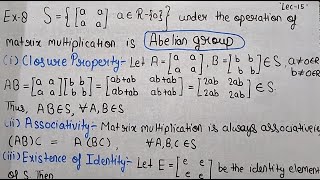 "Lec-15"
Ex-8 S = {[a a; a a] a∈R-{0}} under the operation of
matrix multiplication is Abelian group
(i) Closure Property- Let A = [a a; a a], B = [b b; b b] a≠0∈R b≠0∈R
AB = [a a; a a][b b; b b] = [ab+ab ab+ab; ab+ab ab+ab] = [2ab 2ab; 2ab 2ab] ∈S
Thus, AB∈S, ∀A,B∈S
(ii) Associativity- Matrix multiplication is always associative
(AB)C = A(BC), ∀A,B,C∈S
(iii) Existence of Identity- Let E = [e e; e e] be the identity element
of S. Then